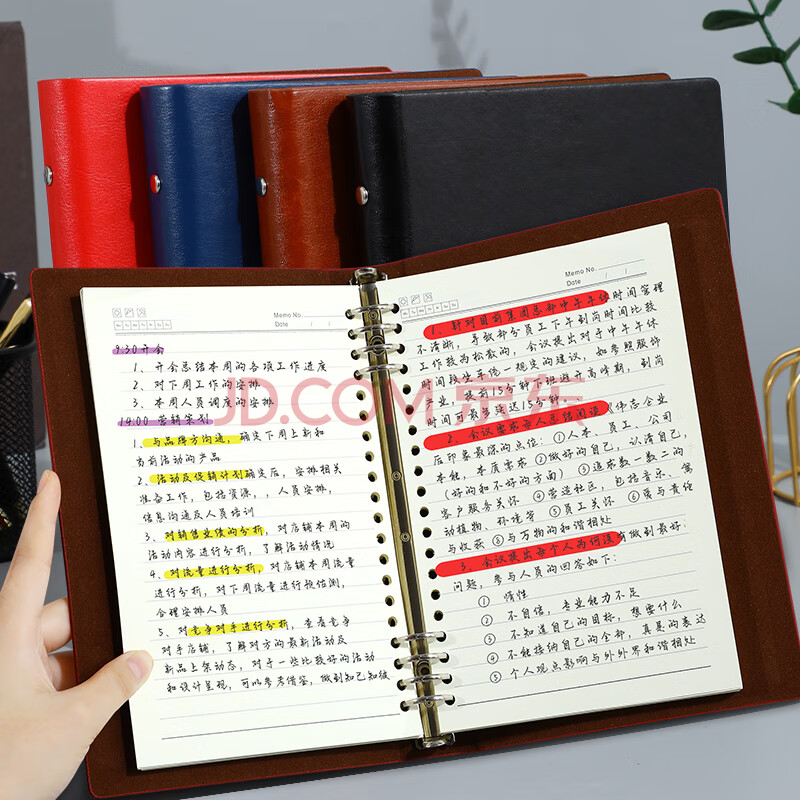 Memo No.
Date / /
9:30 开会
1、开会总结本周的各项工作进度
2、对下周工作的安排
3、本周人员调度的安排
14:00 营销策划
1、与品牌方沟通，确定下周上新和
当前活动的产品
2、活动及促销计划确定后，安排相关
准备工作，包括资源，、人员安排，
信息沟通及人员培训
3、对销售业绩的分析，对店铺本周的
活动内容进行分析，了解活动情况
4、对流量进行分析，对店铺本周流量
进行分析，对下周流量进行预估测，
合理安排人员
5、对竞争对手进行分析，查看竞争
对手店铺，了解对方的最新活动及
新品上架动态，对于一些比较好的活动
和设计呈现，可以参考借鉴，做到知己知彼
Memo No.
Date / /
1、针对目前集团总部中午午休时间管理
不清晰，导致部分员工下午到岗时间比较
工作较为松散的，会议提出对于中午午休
时间段坐年统一规定的建议，如参照服饰
行业，提前15分钟下班避开高峰期，到岗
时间可最多延迟15分钟
2、会议需求每人总结阅读《伟志企业
后印象最深的点位：①人本、员工、公司
本能，本质需求 ②做好的自己，认清自己，
(好的和不好的方面) ③追求数一数二的
客户服务关怀 ④营造社区，包括音乐、寓
动植物、环境等 ⑤员工关怀 ⑥荣与责任
与收获 ⑧与万物的和谐相处
3、会议提出每个人为何没有做到最好：
问题，参与人员的回答如下：
① 惰性
② 不自信，专业能力不足
③ 不知道自己的目标，想要什么
④ 不能接纳自己的全部，真是的表达
⑤ 个人观点影响与外外界和谐相处
JD.COM 京东